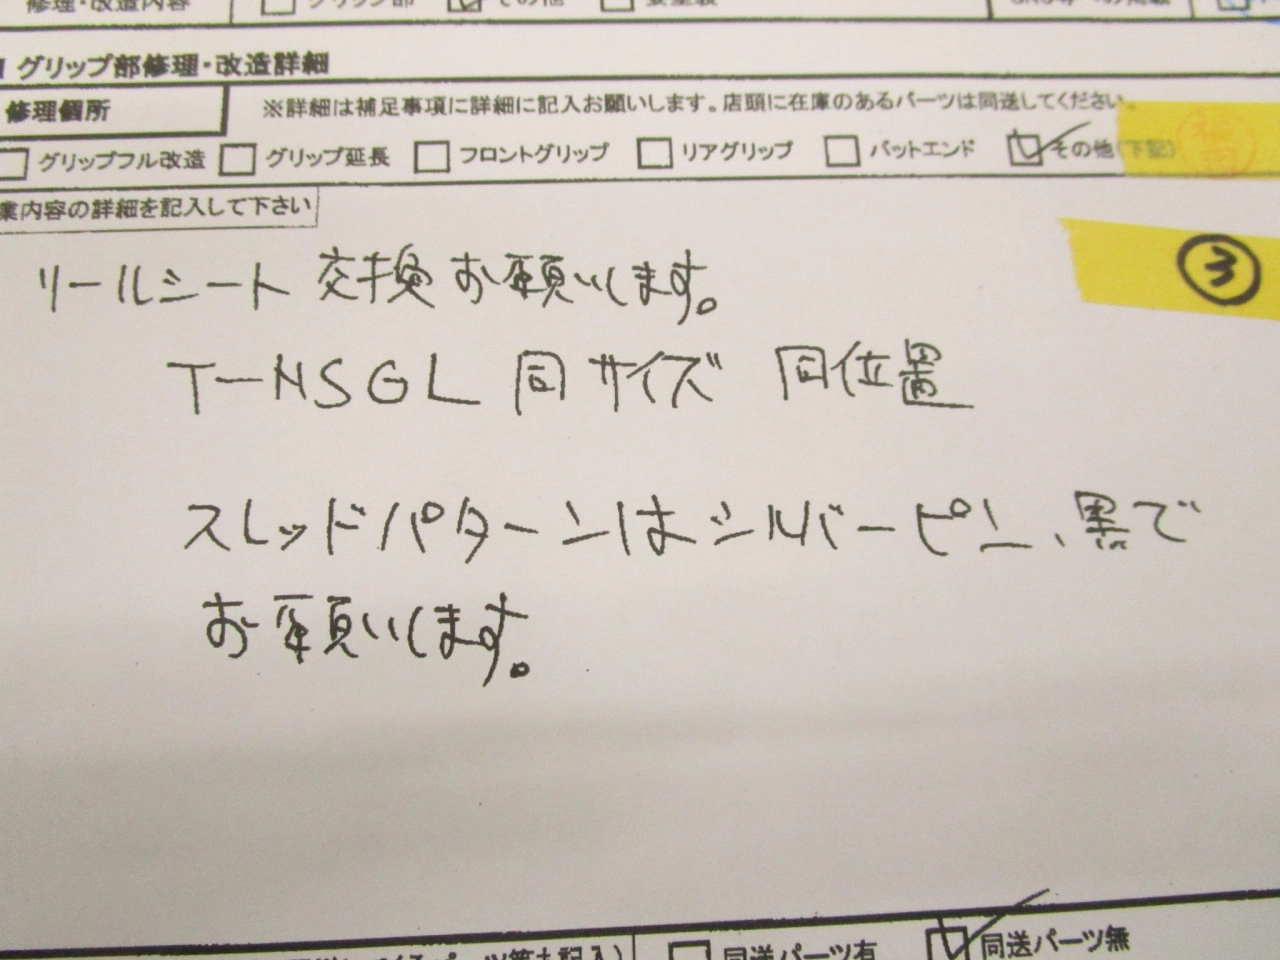 修理・改造内容 グリップ部 その他
グリップ部修理・改造詳細
修理個所 ※詳細は補足事項に詳細に記入お願いします。店頭に在庫のあるパーツは同送してください。
グリップフル改造 グリップ延長 フロントグリップ リアグリップ バットエンド その他(下記)
業内容の詳細を記入して下さい
③
リールシート 交換お願いします。
T-NSGL 同サイズ 同位置
スレッドパターンはシルバーピン、黒で
お願いします。
パーツ等も記入) 同送パーツ有 同送パーツ無